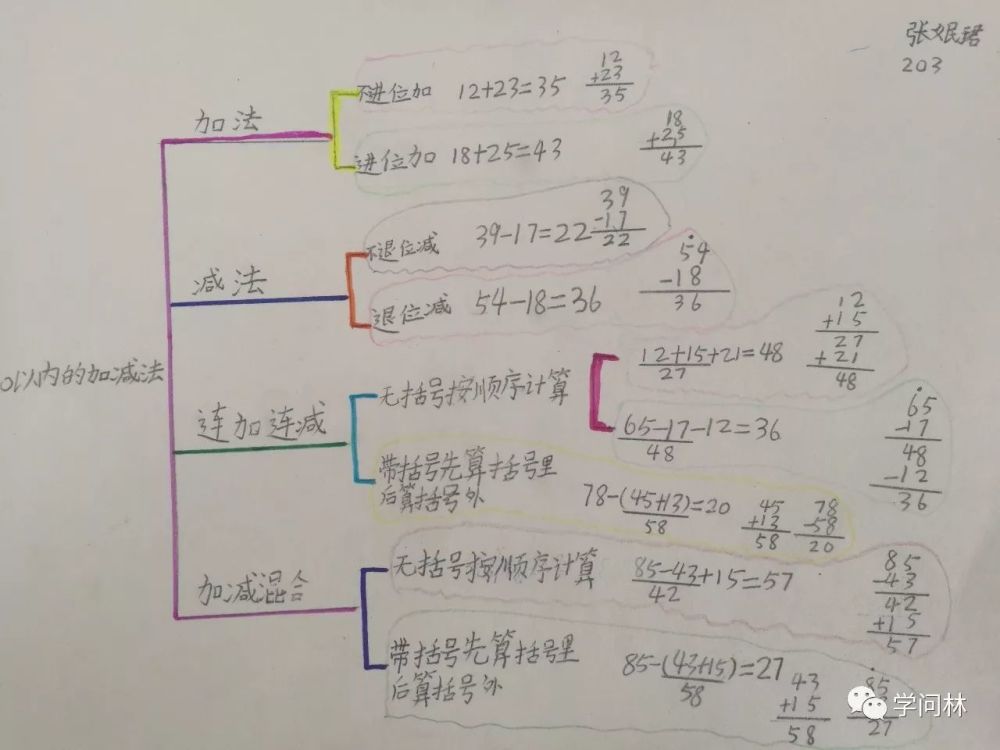 张 珺
203
加法
不进位加 12+23=35
12
+23
35
进位加 18+25=43
18
+25
43
减法
不退位减 39-17=22
39
-17
22
退位减 54-18=36
54
-18
36
以内的加减法
连加连减
无括号按顺序计算
12+15+21=48
27
12
+15
27
+21
48
65-17-12=36
48
65
-17
48
-12
36
带括号先算括号里
后算括号外
78-(45+13)=20
58
45
+13
58
78
-58
20
加减混合
无括号按顺序计算
85-43+15=57
42
85
-43
42
+15
57
带括号先算括号里
后算括号外
85-(43+15)=27
58
43
+15
58
85
27
学问林